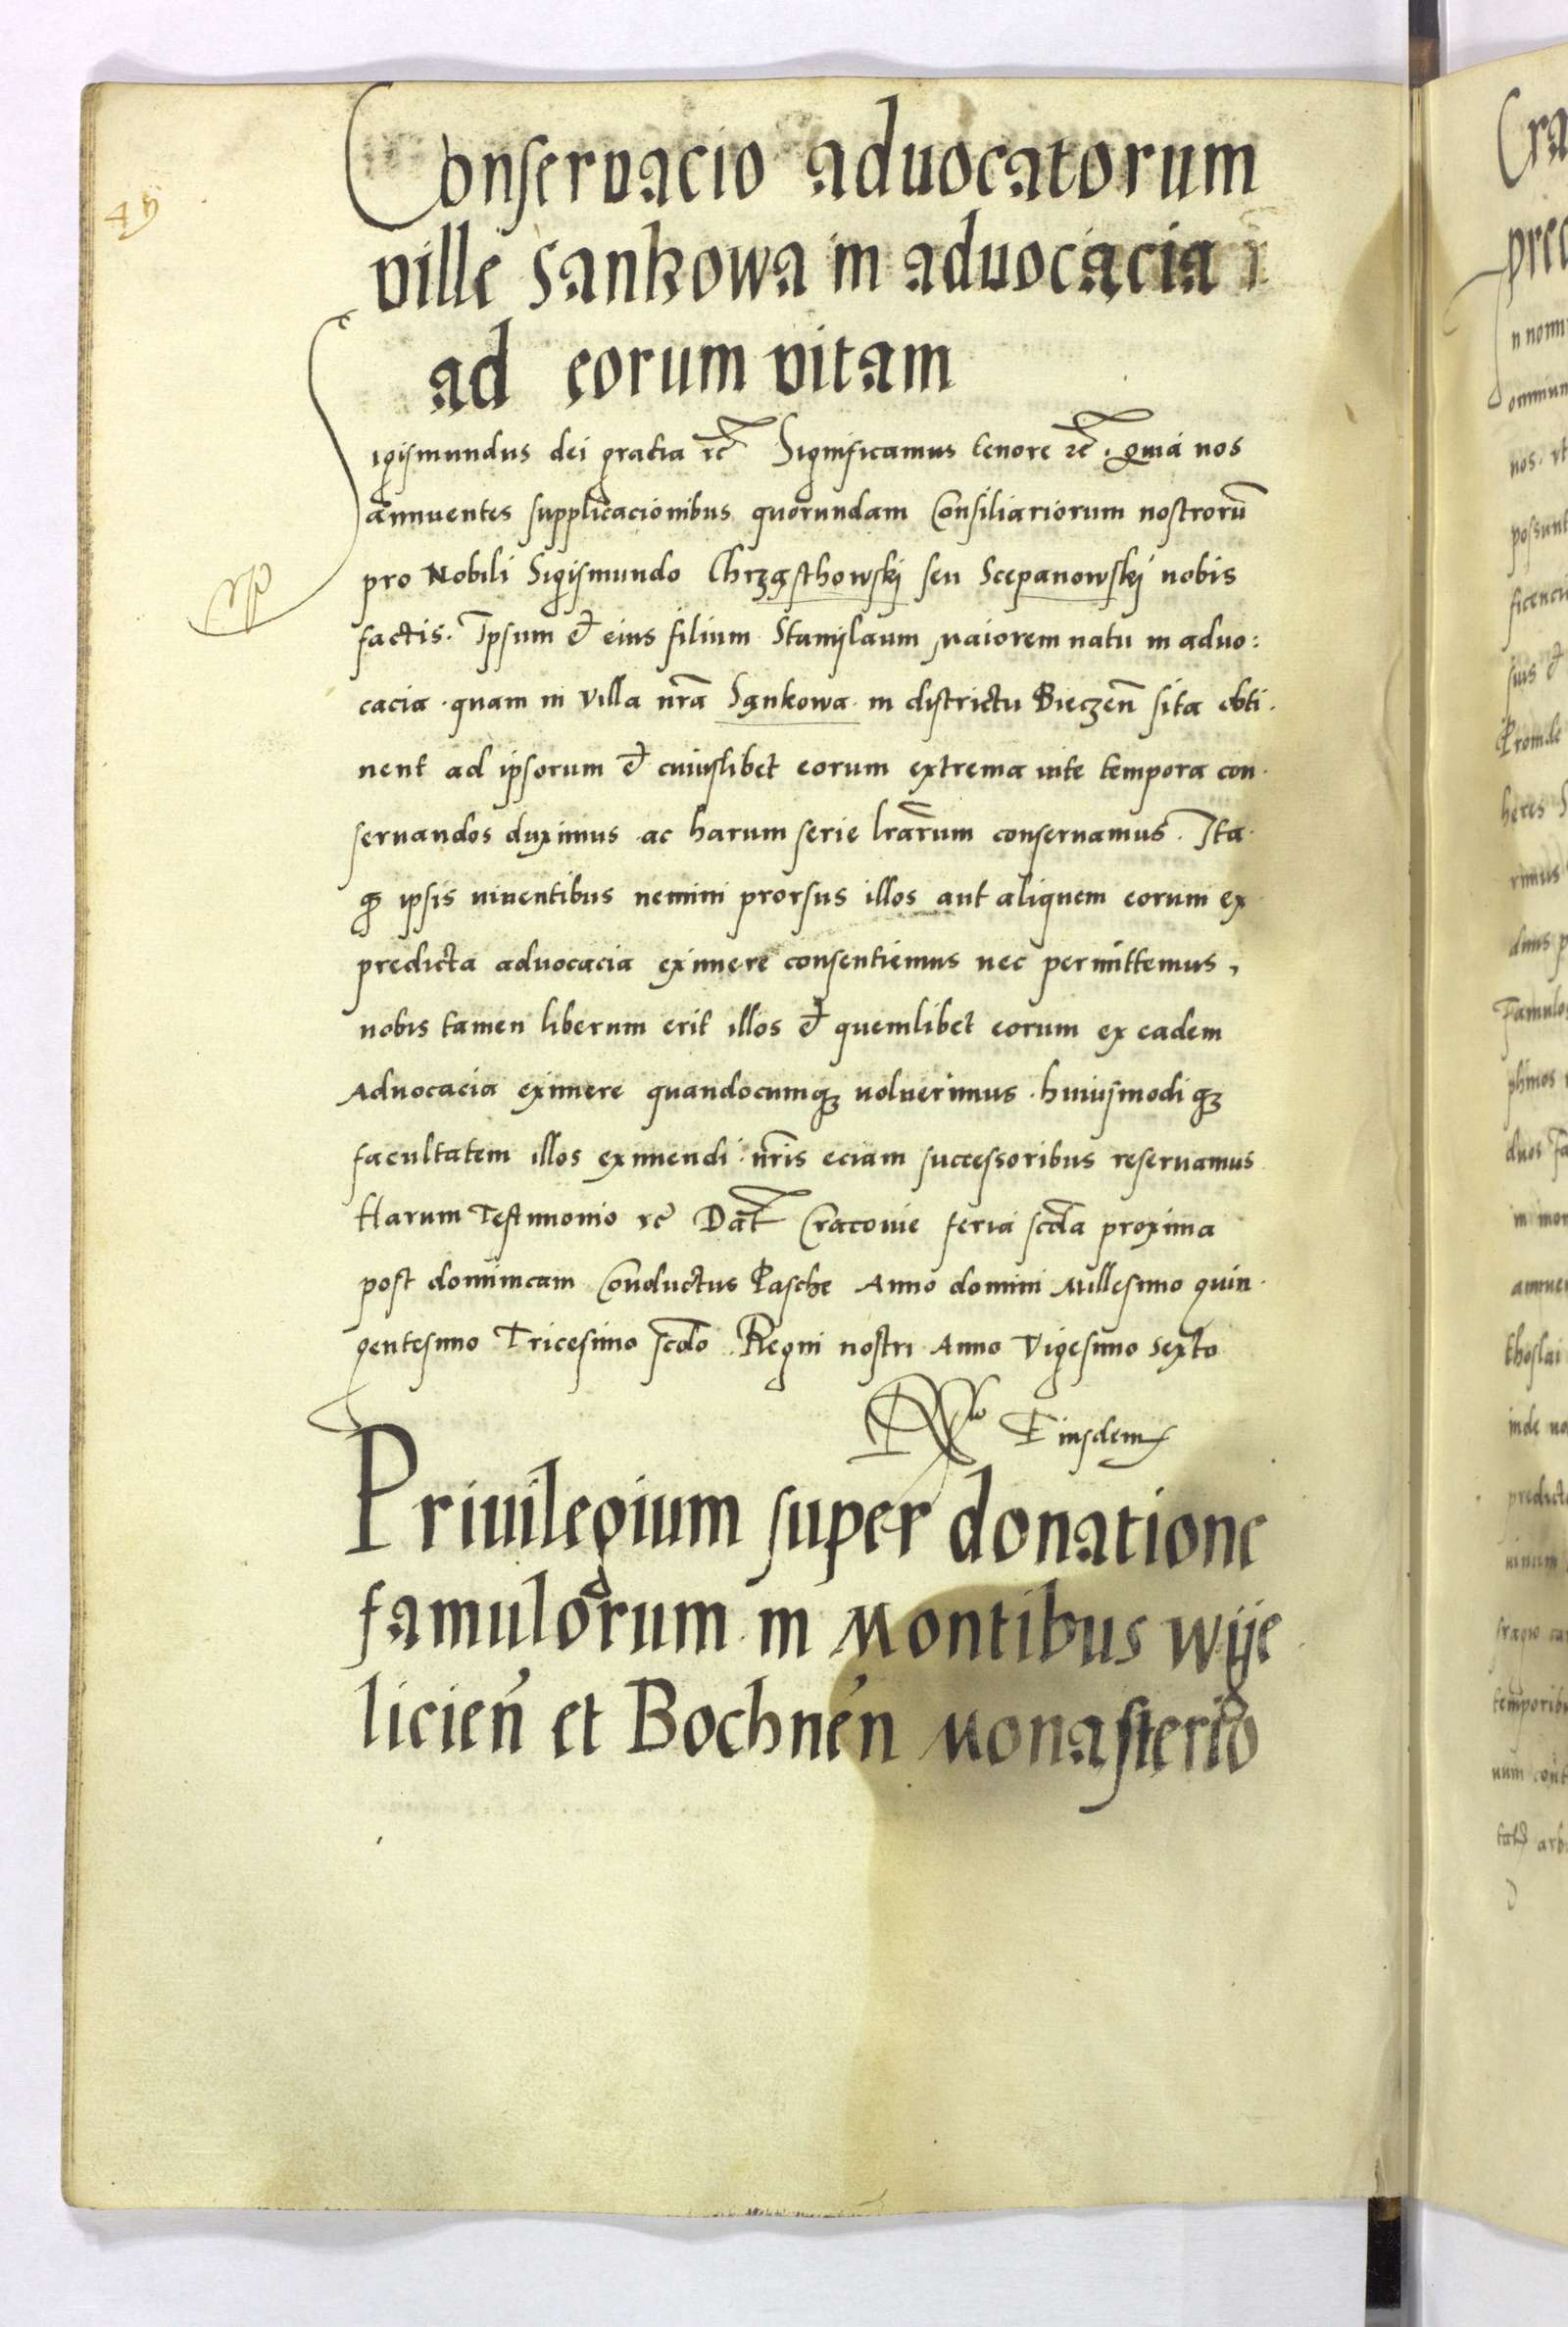 Conseruacio aduocatorum
ville Sankowa in aduocacia
ad eorum vitam
Sigismundus dei gratia etc̃ Significamus tenore etc̃. Quia nos
annuentes supplicacionibus quorundam Consiliariorum nostrorũ
pro Nobili Sigismundo Chrząsthowskj seu Scepanowskj nobis
factis. Ipsum et eius filium Stanislaum Maiorem natu in aduo:
cacia. quam in villa nrã Sąnkowa. in districtu Bieczeñ sita obti.
nent ad ipsorum et cuiuslibet eorum extrema vite tempora con.
seruandos duximus ac harum serie lrãrum conseruamus. Ita.
ꝙ ipsis viuentibus nemini prorsus illos aut aliquem eorum ex
predicta aduocacia eximere consentiemus nec permittemus,
nobis tamen liberum erit illos et quemlibet eorum ex eadem
Aduocacia eximere quandocumqꝫ voluerimus. huiusmodi qꝫ
facultatem illos eximendi. nrĩs eciam successoribus reseruamus
Harum Testimonio etc̃ Dat̃ Cracouie feria scd̃a proxima
post dominicam Conductus Pasche Anno domini Millesimo quin.
gentesimo Tricesimo scd̃o. Regni nostri Anno Vigesimo sexto
Rlo Eiusdem
Priuilegium super donatione
famulorum in Montibus Wije
licieñ et Bochneñ Monasterio